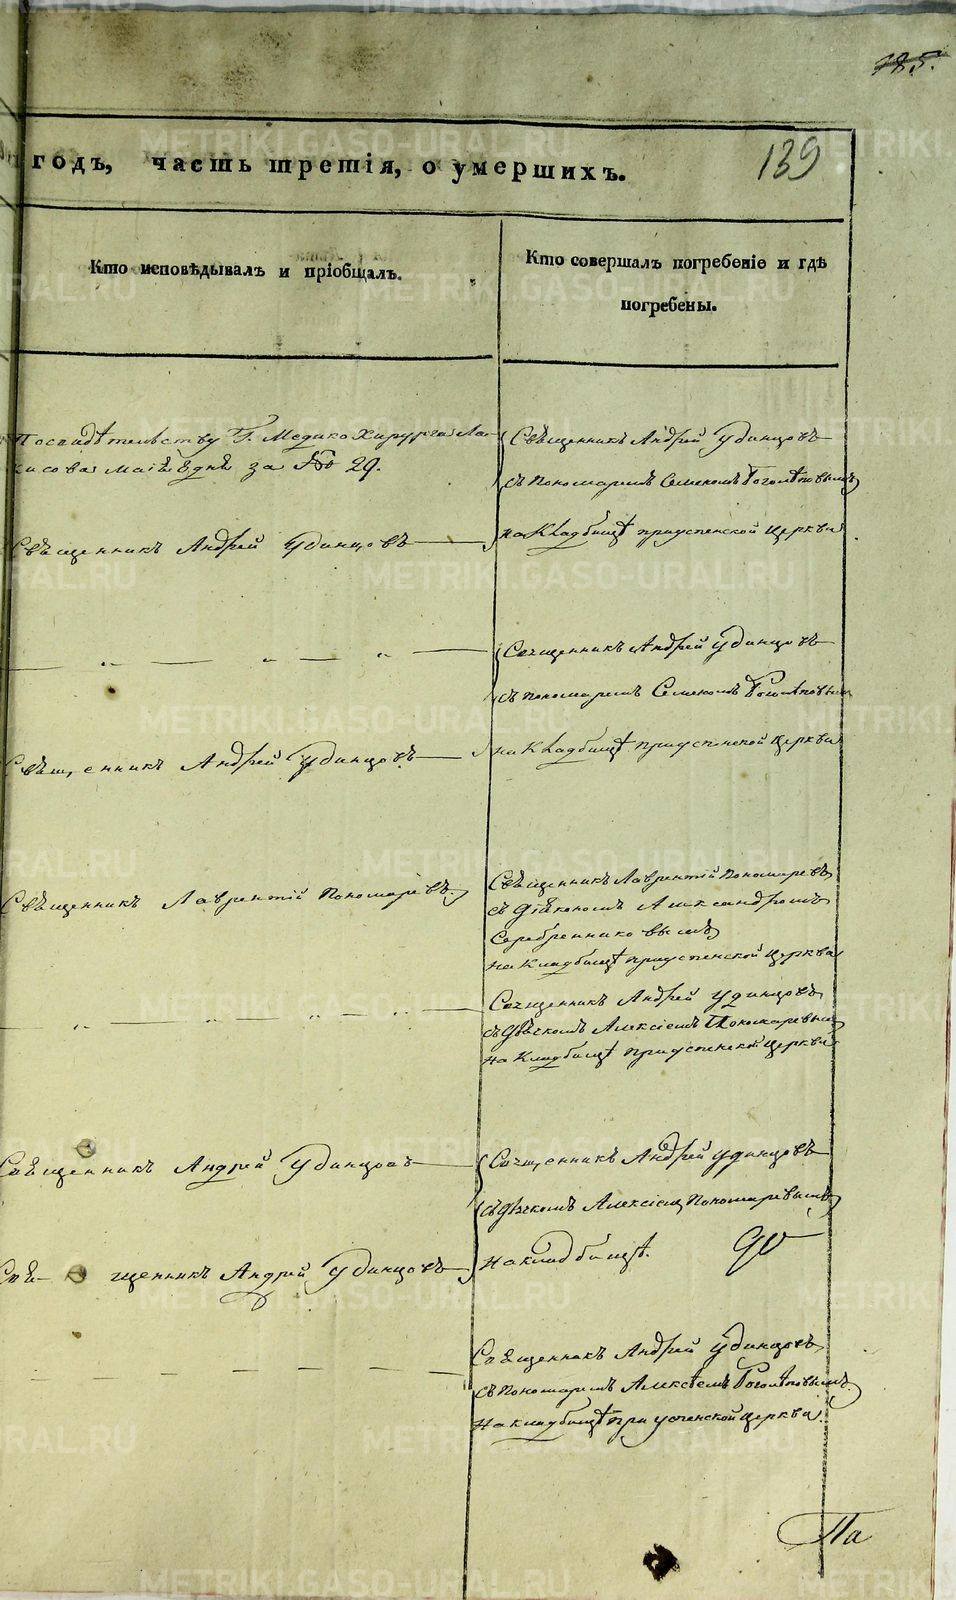 185.
годъ, часть третія, о умершихъ.
139
Кто исповѣдывалъ и пріобщалъ.
Кто совершалъ погребеніе и гдѣ
погребены.
Посвидѣтельству Г. Медико Хирурга
за № 29.
Священникъ Андрей Удинцовъ
съ Пономаремъ Семеномъ Боголѣповымъ
на Кладбищѣ приуспенской церкви
Свѣщенникъ Андрей Удинцовъ
Священникъ Андрей Удинцовъ
съ пономаремъ Семеномъ Боголѣповымъ
на Кладбищѣ приуспенской церкви
Свѣщенникъ Андрей Удинцовъ
Свѣщенникъ Лаврентій Пономаревъ
Свѣщенникъ Лаврентій Пономаревъ
съ Діякономъ Александромъ
Серебренниковымъ
на Кладбищѣ приуспенской церкви
Священникъ Андрей Удинцовъ
съ Дьячкомъ Алексіемъ Пономаревымъ
на Кладбищѣ приуспенской церкви
Свѣщенникъ Андрей Удинцовъ
Священникъ Андрей Удинцовъ
съ дьячкомъ Алексіемъ Пономаревымъ
на кладбищѣ.
Свѣщенникъ Андрей Удинцовъ
Свѣщенникъ Андрей Удинцовъ
съ Пономаремъ Алексѣемъ Боголѣповымъ
на кладбищѣ при успенской церкви.
Па
METRIKI.GASO-URAL.RU